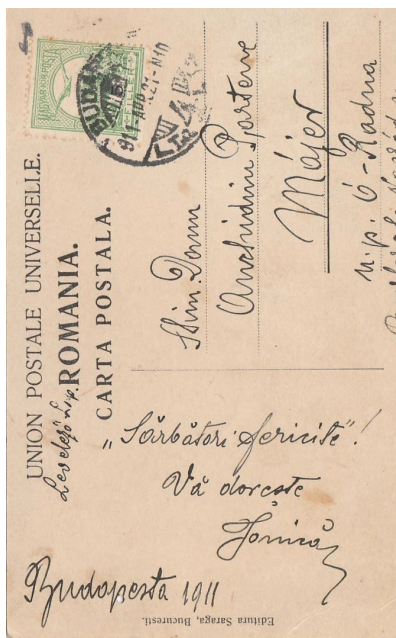 UNION POSTALE UNIVERSELLE.
Levelező Lap. ROMANIA.
CARTA POSTALA.
BUDAPEST
911 APR. 21 N10
Dom̃n
Partenie
Májer
u.p. Ó-Radna
„Sărbători fericite"!
Vă dorește
Ionică
Budapesta 1911
Editura Saraga, Bucuresti.